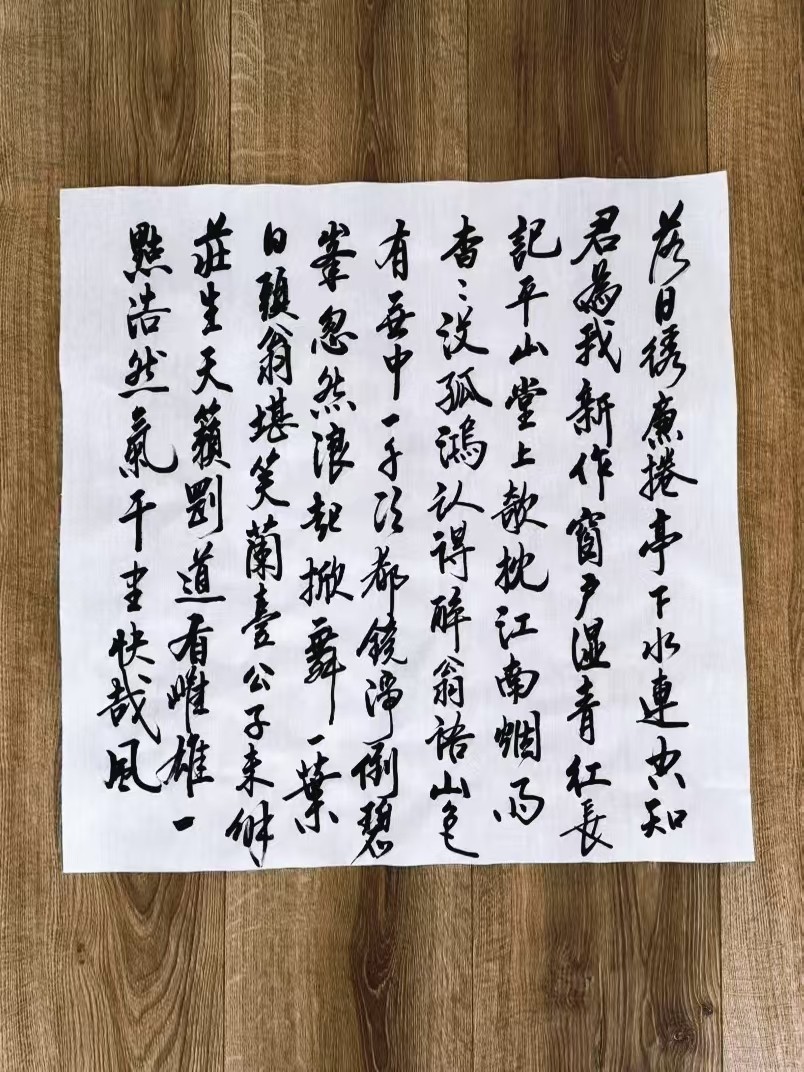 落日繡簾捲亭下水連空知
君為我新作窗戶濕青紅長
記平山堂上欹枕江南烟雨
杳〻沒孤鴻認得醉翁語山色
有無中一千頃都鏡淨倒碧
峯忽然浪起掀舞一葉
白頭翁堪笑蘭臺公子未解
莊生天籟剛道有雌雄一
點浩然氣千里快哉風